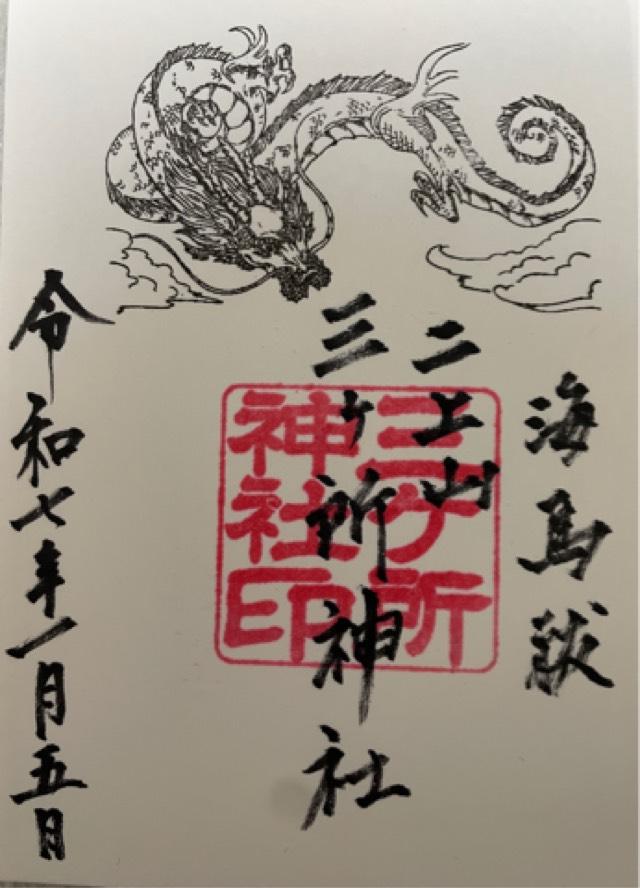 二上山
三ヶ所神社
三ヶ所
神社印
令和七年一月五日